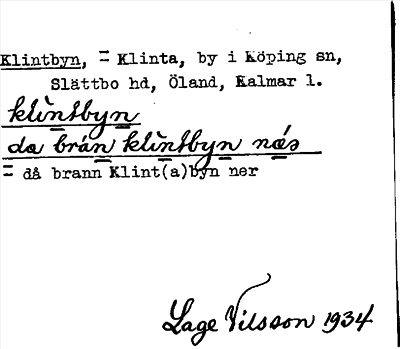 Klintbyn, = Klinta, by i Köping sn,
Slättbo hd, Öland, Kalmar l.
klìntbyn
da brán klìntbyn nǽs
= då brann Klint(a)byn ner
Lage Nilsson 1934